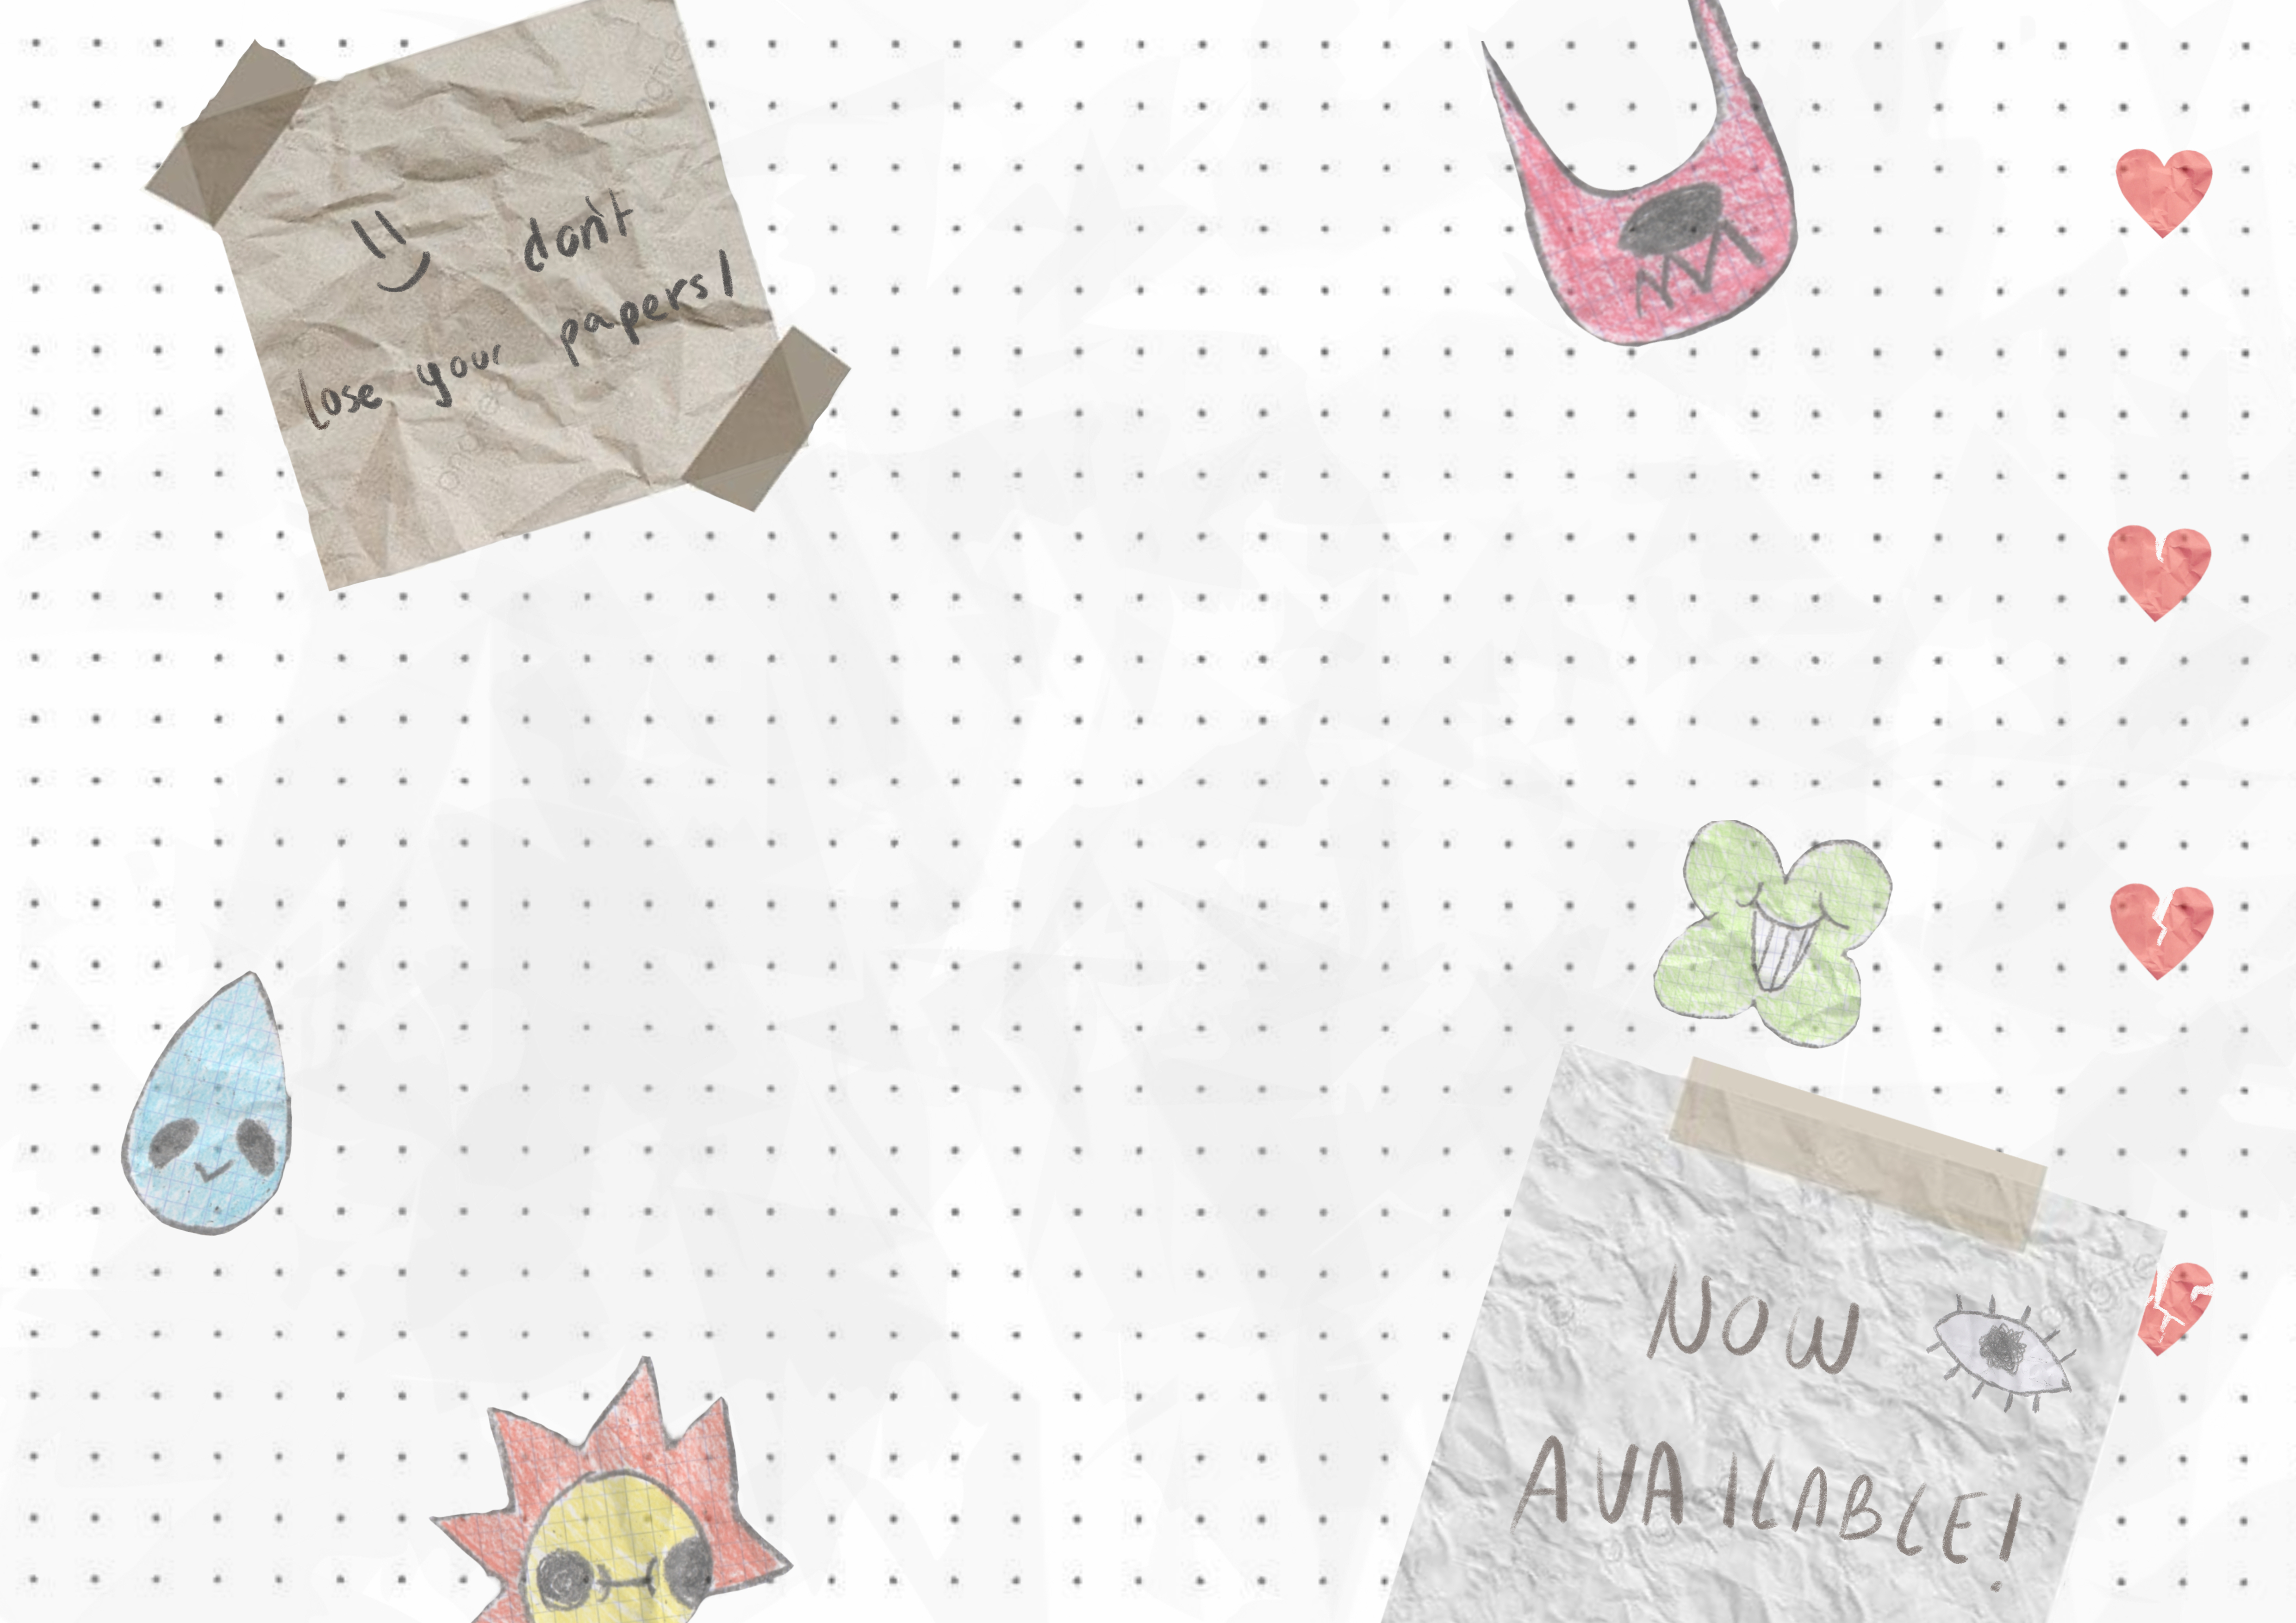 don't
lose your papers!
NOW
AVAILABLE!